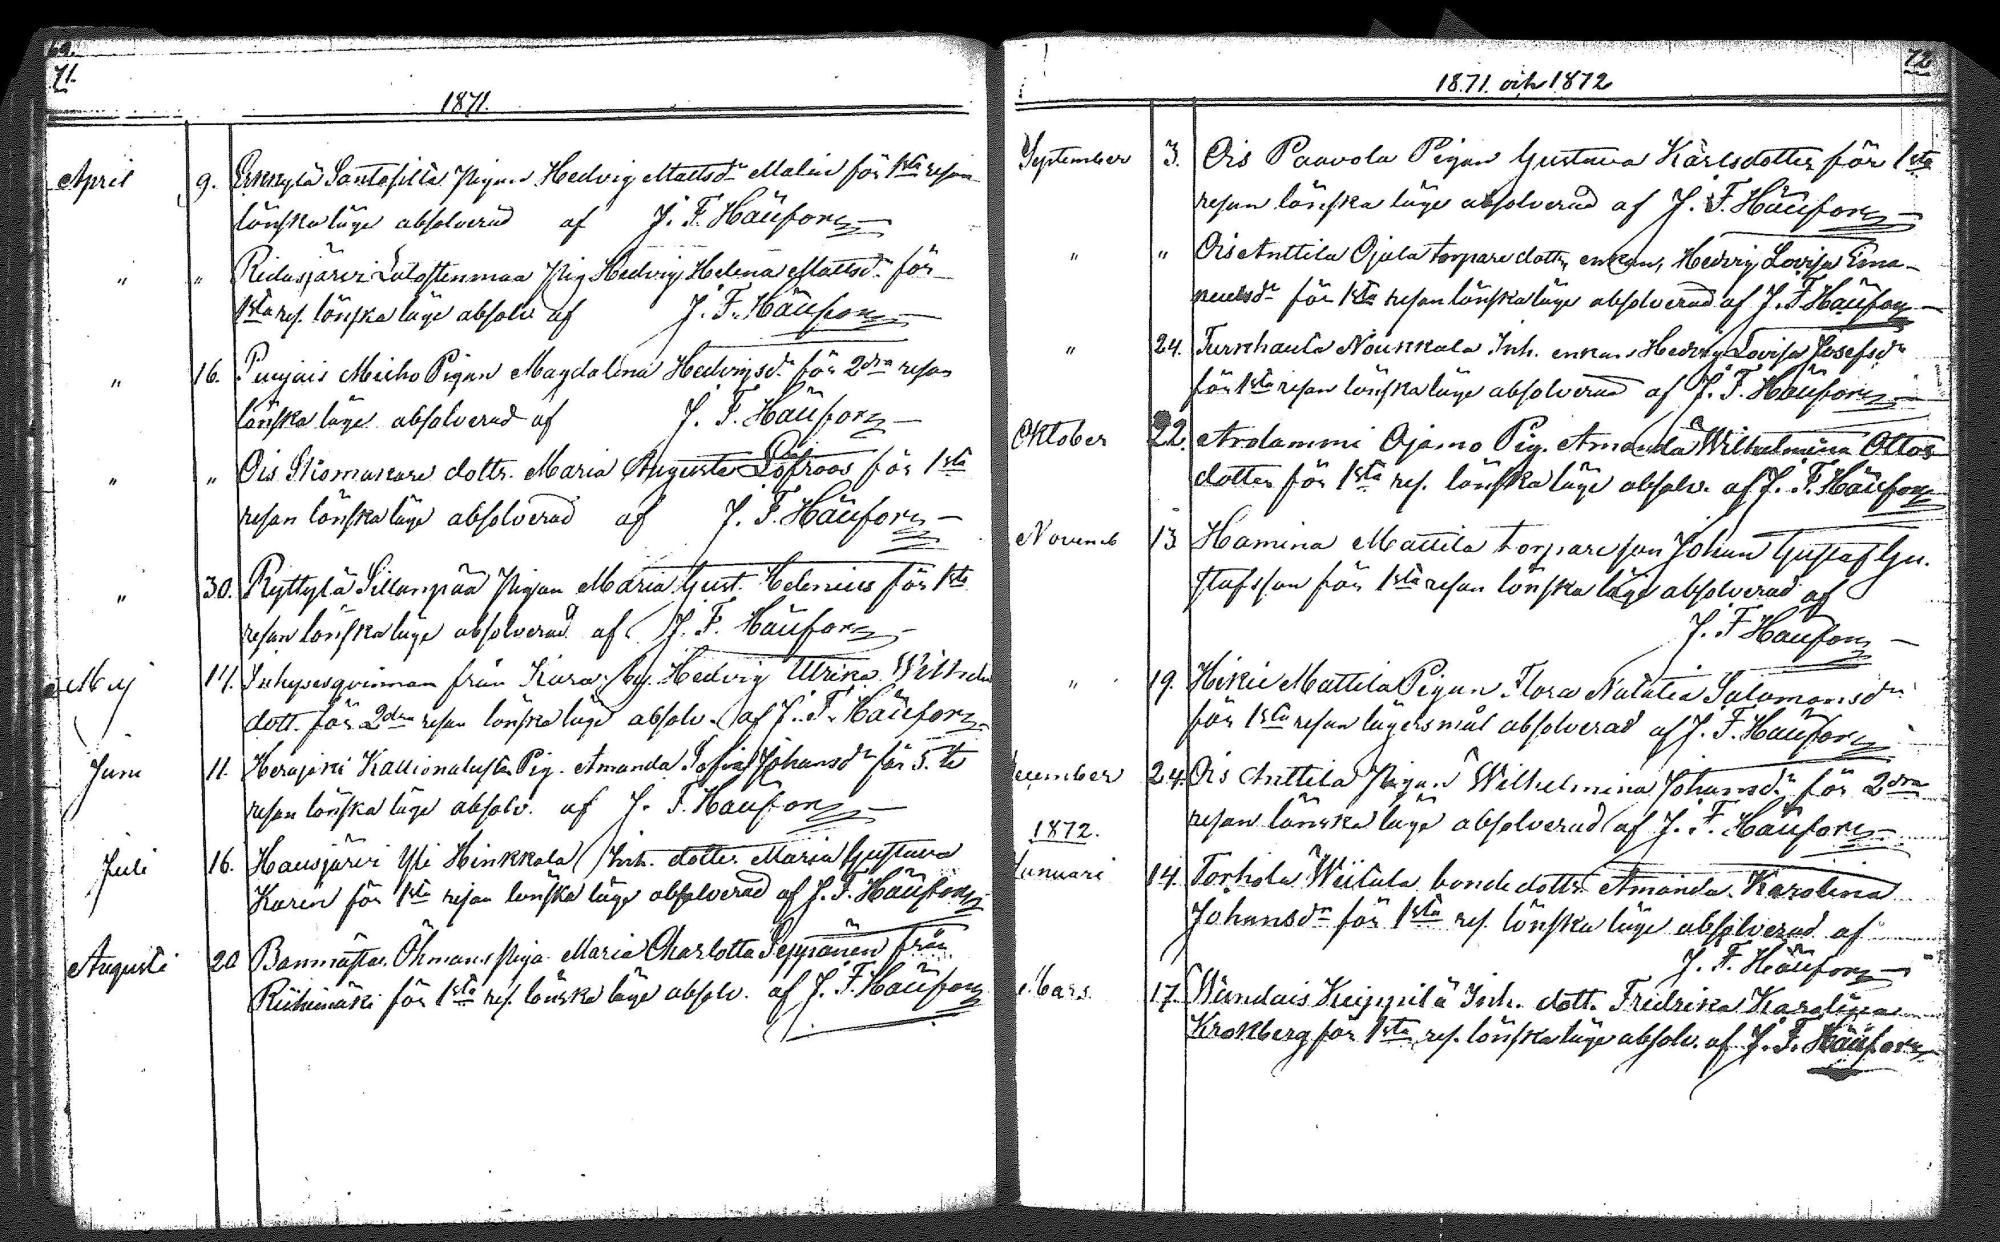 71.
1871.
April 9. Erkkylä Santasilta Pigan Hedvig Mattsdr Malin för 1sta resan
lönskaläge absolverad af J. F. Häüfors
" " Ridasjärvi Pig Hedvig Helena Mattsdr för
1sta res. lönskaläge absolv af J. F. Häüfors
" 16. Puujais Micko Pigan Magdalena Hedvigsdr för 2dra resan
lönskaläge absolverad af J. F. Häüfors
" " Ois dottr. Maria Augusta Löfroos för 1sta
resan lönskaläge absolverad af J. F. Häüfors
" 30. Ryttylä Sillanpää Pigan Maria Gust. Helenius för 1sta
resan lönskaläge absolverad af J. F. Häüfors
Maj 14. Inhysesqvinnan från Kara by. Hedvig Ulrika Wilhelms
dott. för 2dra resan lönskaläge absolv. af J. F. Häüfors
Juni 11. Herajoki Pig. Amanda Sofia Johansdr för 5.te
resan lönskaläge absolv. af J. F. Häüfors
Juli 16. Hausjärvi Yli Hinkkala Inh. dotter Maria Gustava
Karen för 1sta resan lönskaläge absolverad af J. F. Häüfors
Augusti 20 Banmästar Öhmans piga Maria Charlotta Seppänen från
Riihimäki för 1sta res. lönskaläge absolv. af J. F. Häüfors
72
1871. och 1872
September 3. Ois Paavola Pigan Gustava Karlsdotter för 1sta
resan lönskaläge absolverad af J. F. Häüfors
" " Ois Anttila Ojala torpare dottr, enkan, Hedvig Lovisa Ema-
nuelsdr för 1sta resan lönskaläge absolverad af J. F. Häüfors
" 24. Turkhauta Noukkala Inh. enkan Hedvig Lovisa Josefsdr
för 1sta resan lönskaläge absolverad af J. F. Häüfors
Oktober 22. Ojamo Pig. Amanda Wilhelmina Ottos
dotter för 1sta res. lönskaläge absolv. af J. F. Häüfors
Novemb 13 Hamina Mattila torpare son Johan Gustaf Gu-
stafsson för 1sta resan lönskaläge absolverad af
J. F. Häüfors
" 19. Hikiä Mattila Pigan Flora Natalia Salomonsdr
för 1sta resan lägersmål absolverad af J. F. Häüfors
ecember 24. Ois Anttila Pigan Wilhelmina Johansdr för 2dra
resan lönskaläge absolverad af J. F. Häüfors
1872.
Januari 14. Torhola Wiitala bonde dottr Amanda Karolina
Johansdr för 1sta res. lönskaläge absolverad af
J. F. Häüfors
Mars. 17. Wandais Inh. dott. Fredrika Karolina
Krokberg för 1sta res. lönskaläge absolv. af J. F. Häüfors